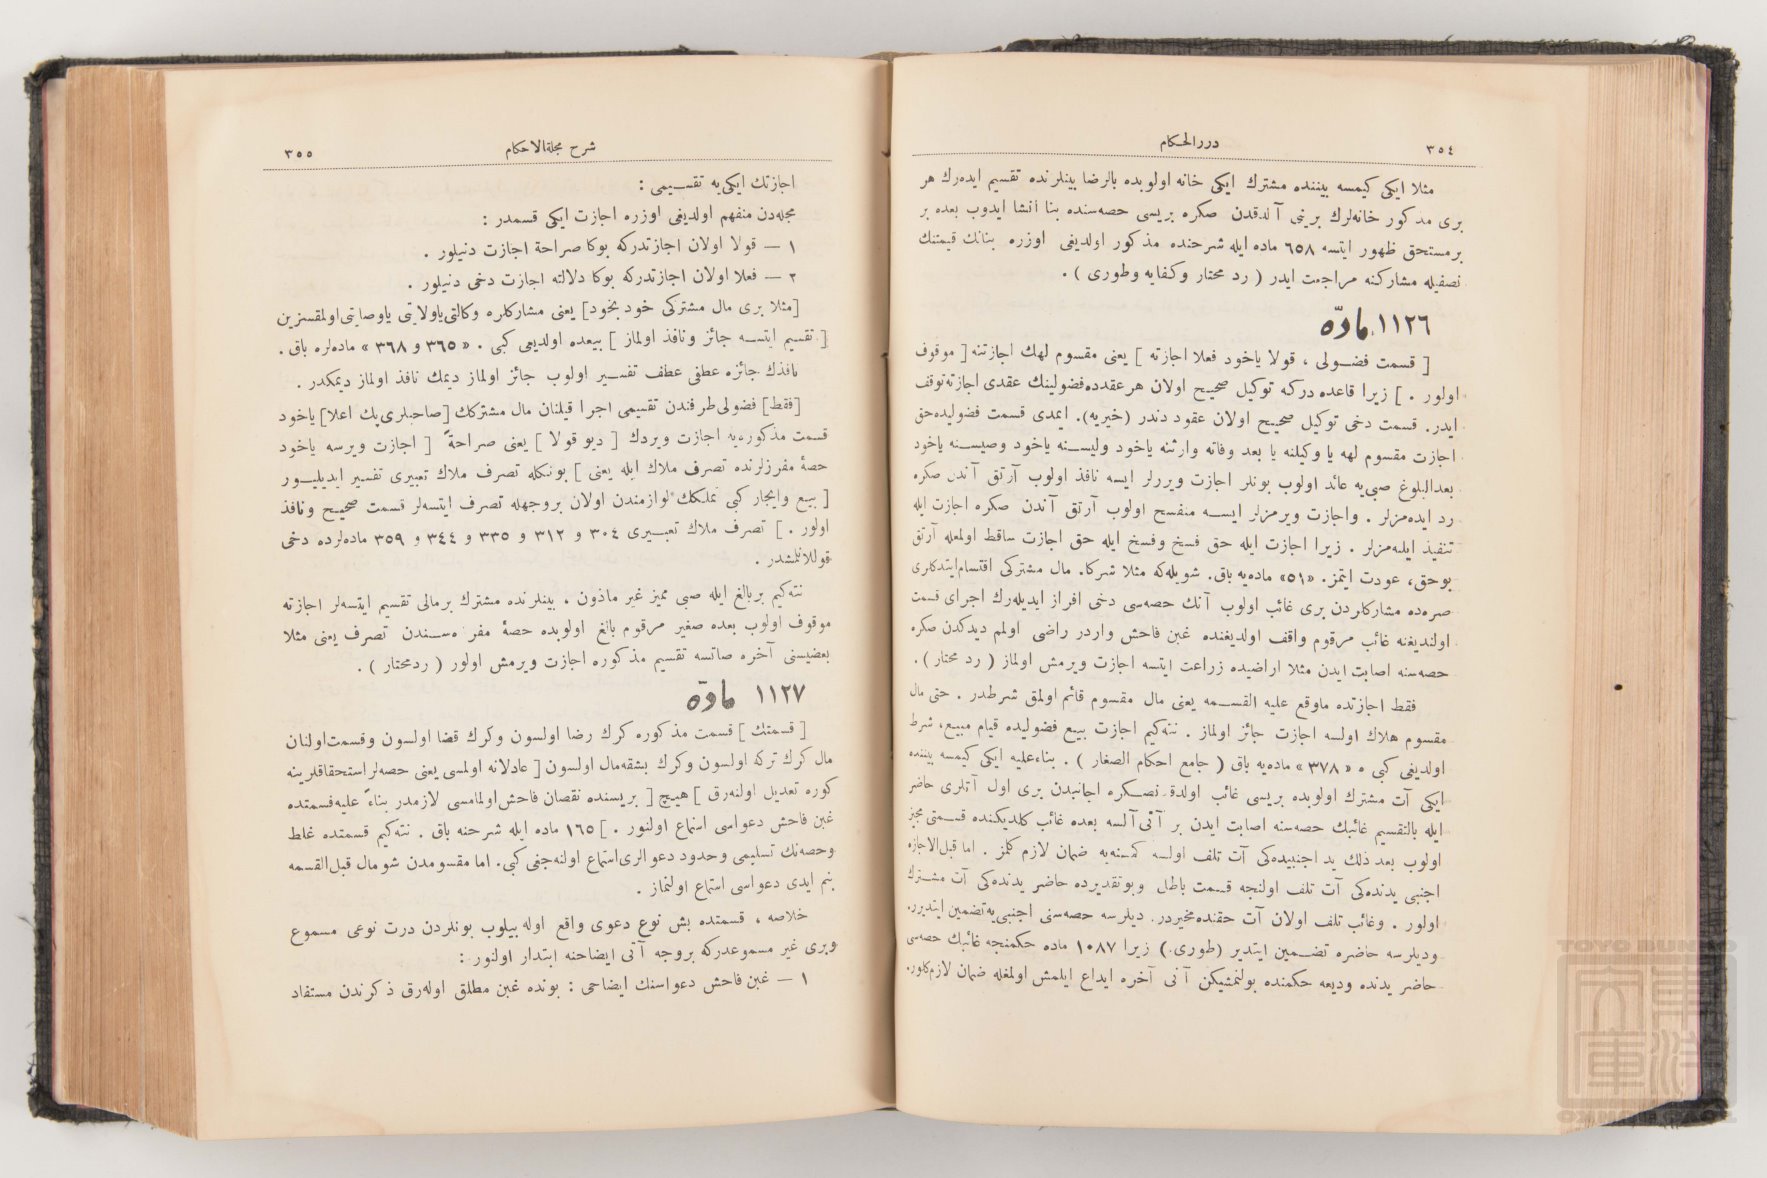 ٣٥٤
دررالحكام
مثلا ايكى كيمسه بيننده مشترك ايكى خانه اولوبده بالرضا بينلرنده تقسيم ايده‌رك هر
برى مذكور خانه‌لرك برينى آلدقدن صكره بريسى حصه‌سنده بنا انشا ايدوب بعده بر
برمستحق ظهور ايتسه ٦٥٨ ماده ايله شرحنده مذكور اولديغى اوزره بنانك قيمتنك
نصفيله مشاركنه مراجعت ايدر ( رد محتار وكفايه وطورى ) .
١١٢٦ مادّه
[ قسمت فضولى ، قولا ياخود فعلا اجازته ] يعنى مقسوم لهك اجازتنه [ موقوف
اولور . ] زيرا قاعده دركه توكيل صحيح اولان هر عقدده فضولينك عقدى اجازته توقف
ايدر. قسمت دخى توكيل صحيح اولان عقود دندر (خيريه). ايمدى قسمت فضوليده حق
اجازت مقسوم لهه يا وكيلنه يا بعد وفاته وارثنه ياخود وليسنه ياخود وصيسنه ياخود
بعدالبلوغ صبى‌يه عائد اولوب بونلر اجازت ويررلر ايسه نافذ اولوب آرتق آندن صكره
رد ايده‌مزلر . واجازت ويرمزلر ايسه منفسخ اولوب آرتق آندن صكره اجازت ايله
تنفيذ ايلمه‌مزلر . زيرا اجازت ايله حق فسخ وفسخ ايله حق اجازت ساقط اولمغله آرتق
بوحق، عودت ايتمز. «٥١» ماده‌يه باق. شويله‌كه مثلا شركا. مال مشتركى اقتسام ايتدكلرى
صره‌ده مشاركلردن برى غائب اولوب آنك حصه‌سى دخى افراز ايديله‌رك اجراى قسمت
اولنديغنه غائب مرقوم واقف اولديغنده غبن فاحش واردر راضى اولمم ديدكدن صكره
حصه‌سنه اصابت ايدن مثلا اراضيده زراعت ايتسه اجازت ويرمش اولماز ( رد محتار ) .
فقط اجازتده ماوقع عليه القسمه يعنى مال مقسوم قائم اولمق شرطدر . حتى مال
مقسوم هلاك اولسه اجازت جائز اولماز . نته‌كيم اجازت بيع فضوليده قيام مبيع، شرط
اولديغى كبى . « ٣٧٨ » ماده‌يه باق ( جامع احكام الصغار ) . بناءعليه ايكى كيمسه بيننده
ايكى آت مشترك اولوبده بريسى غائب اولدقدنصكره اجانبدن برى اول آتلرى حاضر
ايله بالتقسيم غائبك حصه‌سنه اصابت ايدن بر آتى آلسه بعده غائب كلديكنده قسمتى مجيز
اولوب بعد ذلك يد اجنبيده‌كى آت تلف اولسه كمسنه‌يه ضمان لازم كلمز . اما قبل‌الاجازه
اجنبى يدنده‌كى آت تلف اولنجه قسمت باطل وبوتقديرده حاضر يدنده‌كى آت مشترك
اولور . وغائب تلف اولان آت حقنده مخيردر. ديلرسه حصه‌سنى اجنبى‌يه تضمين ايتديرر.
وديلرسه حاضره تضمين ايتدير (طورى.) زيرا ١٠٨٧ ماده حكمنجه غائبك حصه‌سى
حاضر يدنده وديعه حكمنده بولنمشيكن آنى آخره ايداع ايلمش اولمغله ضمان لازمكلور.
شرح مجلةالاحكام
٣٥٥
اجازتك ايكى‌يه تقسيمى :
مجله‌دن منفهم اولديغى اوزره اجازت ايكى قسمدر :
١ — قولا اولان اجازتدركه بوكا صراحة اجازت دنيلور .
٢ — فعلا اولان اجازتدركه بوكا دلالته اجازت دخى دنيلور .
[مثلا برى مال مشتركى خود بخود] يعنى مشاركلره وكالتى ياولايتى ياوصايتى اولمقسزين
[ تقسيم ايتسه جائز ونافذ اولماز ] بيعده اولديغى كبى . « ٣٦٥ و ٣٦٨ » ماده‌لره باق .
نافذك جائزه عطفى عطف تفسير اولوب جائز اولماز ديمك نافذ اولماز ديمكدر .
[فقط] فضولى طرفندن تقسيمى اجرا قيلنان مال مشتركك [صاحبلرى پك اعلا] ياخود
قسمت مذكوره‌يه اجازت ويردك [ ديو قولا ] يعنى صراحةً [ اجازت ويرسه ياخود
حصهٔ مفرزلرنده تصرف ملاك ايله يعنى ] بونكله تصرف ملاك تعبيرى تفسير ايديليور
[ بيع وايجار كبى تملكك لوازمندن اولان بروجهله تصرف ايتسه‌لر قسمت صحيح ونافذ
اولور . ] تصرف ملاك تعبيرى ٣٠٤ و ٣١٢ و ٣٣٥ و ٣٤٤ و ٣٥٩ ماده‌لرده دخى
قوللانلمشدر .
نته‌كيم بربالغ ايله صبى مميز غير ماذون ، بينلرنده مشترك برمالى تقسيم ايتسه‌لر اجازته
موقوف اولوب بعده صغير مرقوم بالغ اولوبده حصهٔ مفرزه‌سندن تصرف يعنى مثلا
بعضيسنى آخره صاتسه تقسيم مذكوره اجازت ويرمش اولور ( ردمحتار ) .
١١٢٧ مادّه
[ قسمتك ] قسمت مذكوره كرك رضا اولسون وكرك قضا اولسون وقسمت اولنان
مال كرك تركه اولسون وكرك بشقه‌مال اولسون [ عادلانه اولمسى يعنى حصه‌لر استحقاقلرينه
كوره تعديل اولنه‌رق ] هيچ [ بريسنده نقصان فاحش اولمامسى لازمدر بناءً عليه قسمتده
غبن فاحش دعواسى استماع اولنور . ] ١٦٥ ماده ايله شرحنه باق . نته‌كيم قسمتده غلط
وحصه‌نك تسليمى وحدود دعوالرى استماع اولنه‌جغى كبى. اما مقسومدن شو مال قبل القسمه
بنم ايدى دعواسى استماع اولنماز .
خلاصه ، قسمتده بش نوع دعوى واقع اوله‌بيلوب بونلردن درت نوعى مسموع
وبرى غير مسموعدركه بروجه آتى ايضاحنه ابتدار اولنور :
١ — غبن فاحش دعواسنك ايضاحى : بونده غبن مطلق اوله‌رق ذكرندن مستفاد
TOYO BUNKO